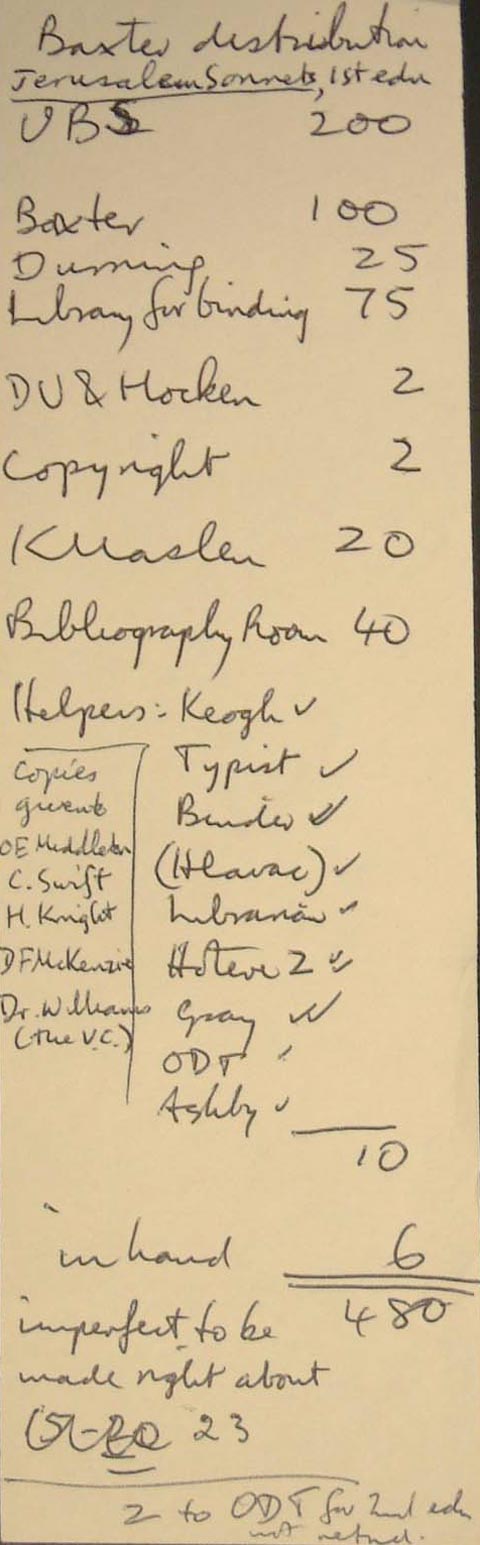 Baxter distribution
Jerusalem Sonnets, 1st edn
UBS 200
Baxter 100
Dunning 25
Library for binding 75
DU & Hocken 2
Copyright 2
K Maslen 20
Bibliography Room 40
Helpers: Keogh ✓
Typist ✓
Binder ✓
(Hlavac) ✓
Librarian ✓
2 ✓
Gray ✓✓
ODT ✓
Ashby ✓
10
Copies
given to
OE Middleton
C. Swift
H. Knight
DF McKenzie
Dr. Williams
(the V.C.)
in hand 6
480
imperfect to be
made right about
23
2 to ODT for 2nd edn
not